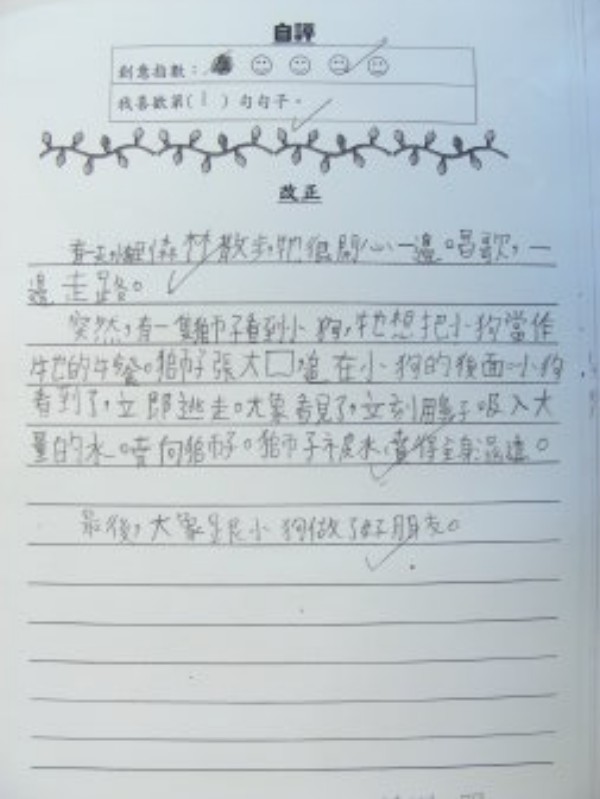 自評
創意指數：
我喜歡第(1)句句子。
改正
有一天,小狗在森林散步,牠很開心一邊唱歌,一
邊走路。
突然,有一隻獅子看到小狗,牠想把小狗當作
牠的午餐。獅子張大口,追在小狗的後面。小狗
看到了,立即逃走。大象看見了,立刻用鼻子吸入大
量的水。噴向獅子。獅子被水噴得全身濕透。
最後,大象跟小狗做了好朋友。